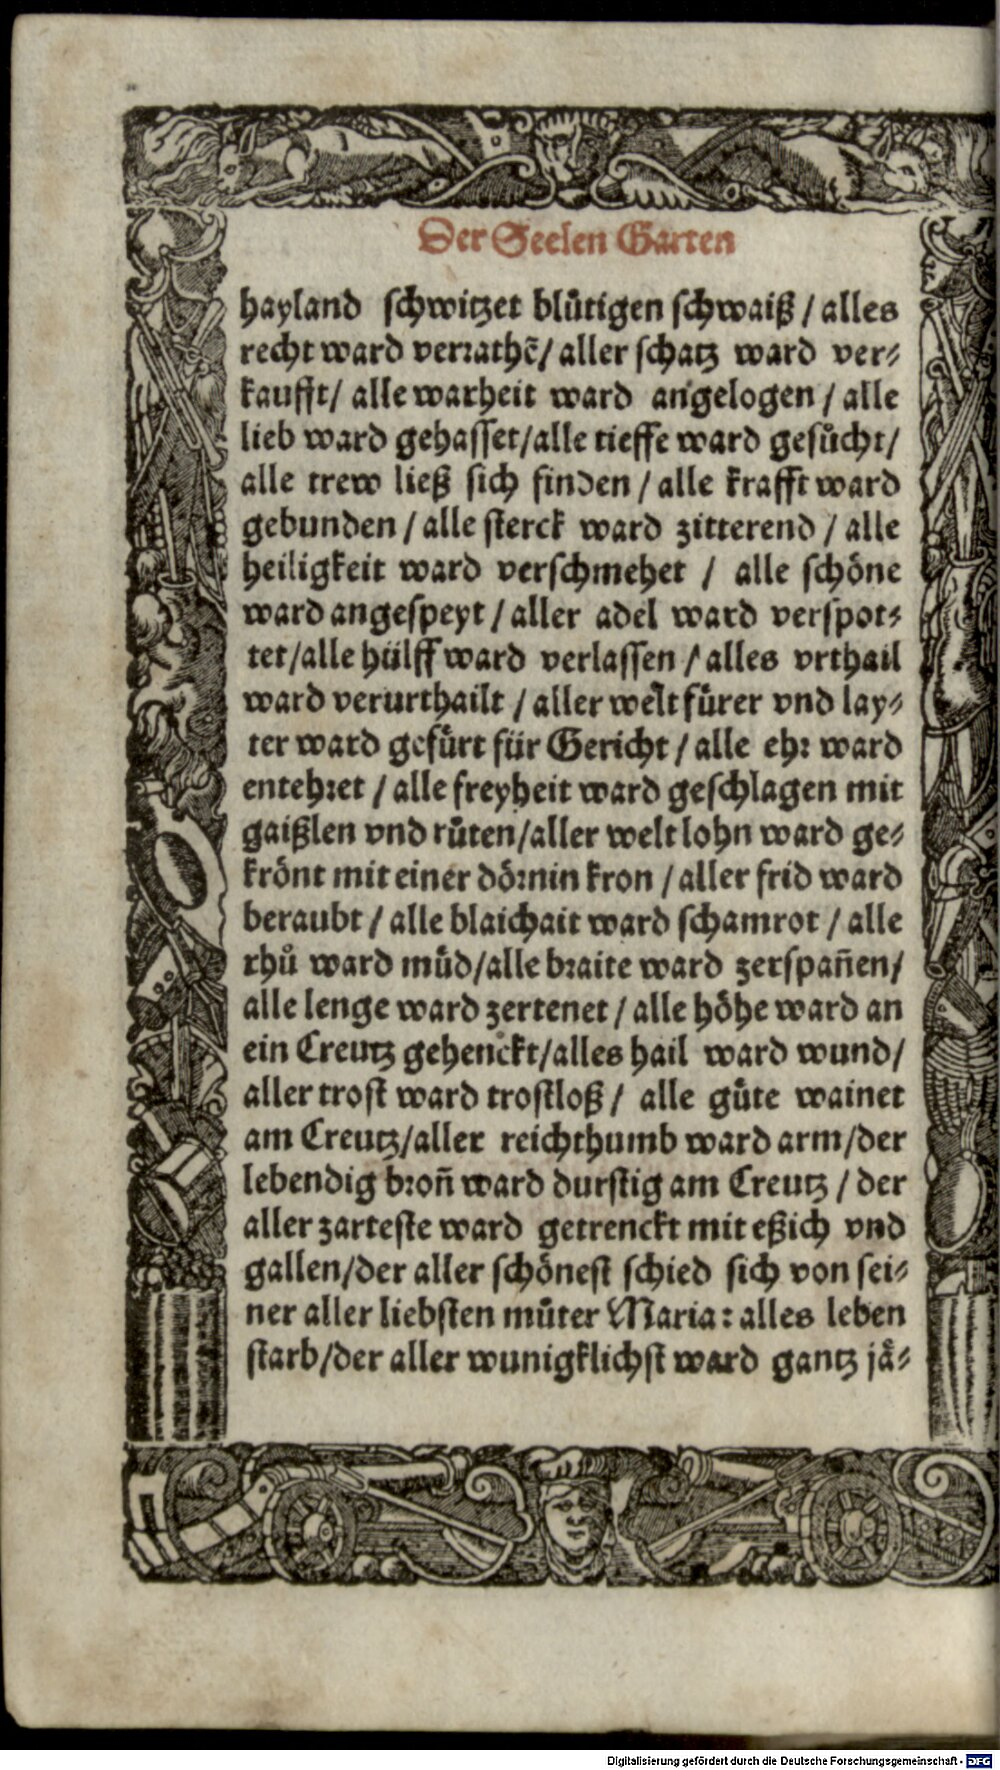 Der Seelen Garten
hayland schwitzet blůtigen schwaiß / alles
recht ward verrathẽ/ aller schatz ward ver-
kaufft/ alle warheit ward angelogen / alle
lieb ward gehasset/alle tieffe ward gesůcht/
alle trew ließ sich finden / alle krafft ward
gebunden / alle sterck ward zitterend / alle
heiligkeit ward verschmehet / alle schöne
ward angespeyt / aller adel ward verspot-
tet/alle hülff ward verlassen / alles vrthail
ward verurthailt / aller welt fürer vnd lay-
ter ward gefürt für Gericht / alle ehr ward
entehret / alle freyheit ward geschlagen mit
gaißlen vnd růten/aller welt lohn ward ge-
krönt mit einer dörnin kron / aller frid ward
beraubt / alle blaichait ward schamrot / alle
rhů ward müd/alle braite ward zerspañen/
alle lenge ward zertenet / alle höhe ward an
ein Creutz gehenckt/alles hail ward wund/
aller trost ward trostloß / alle güte wainet
am Creutz/aller reichthumb ward arm/der
lebendig broñ ward durstig am Creutz / der
aller zarteste ward getrenckt mit eßich vnd
gallen/der aller schönest schied sich von sei-
ner aller liebsten můter Maria: alles leben
starb/der aller wunigklichst ward gantz jä-
Digitalisierung gefördert durch die Deutsche Forschungsgemeinschaft - DFG